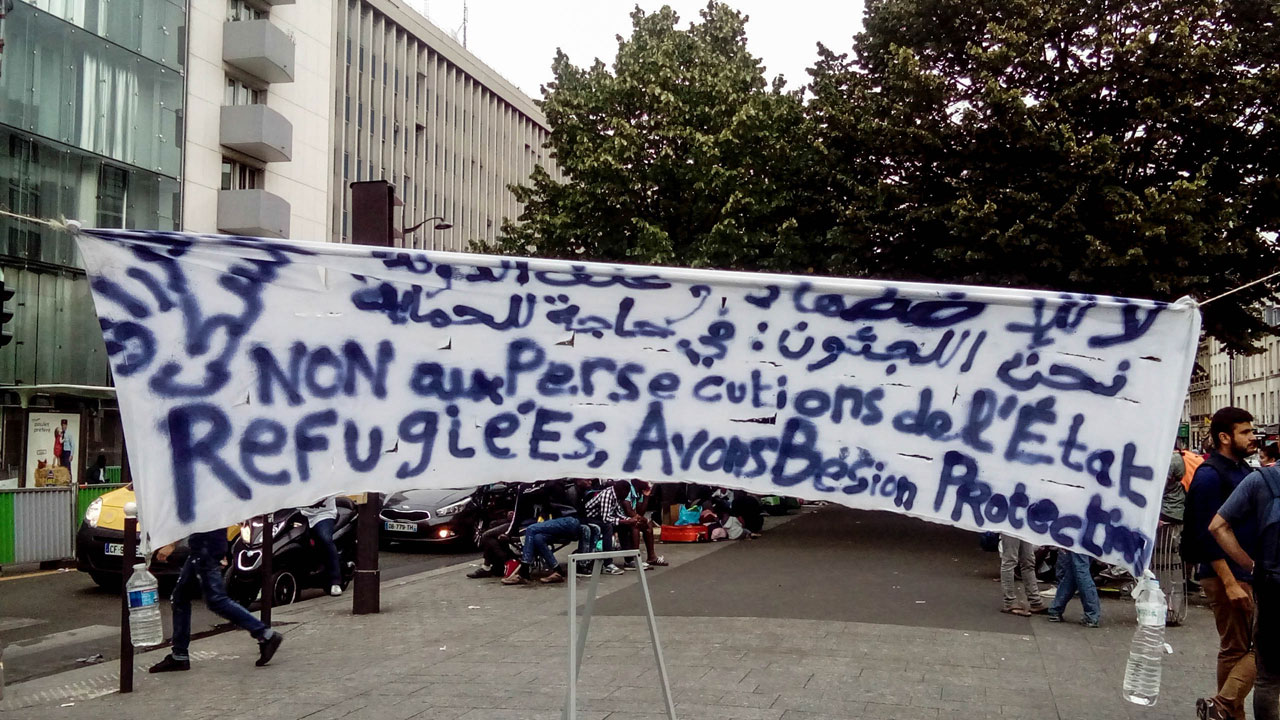 لا لإضطهاد و عنف الدولة
نحن اللجئون: في حاجة للحماية
NON aux Persecutions de l'État
Refugié'Es, Avons Bésion Protection